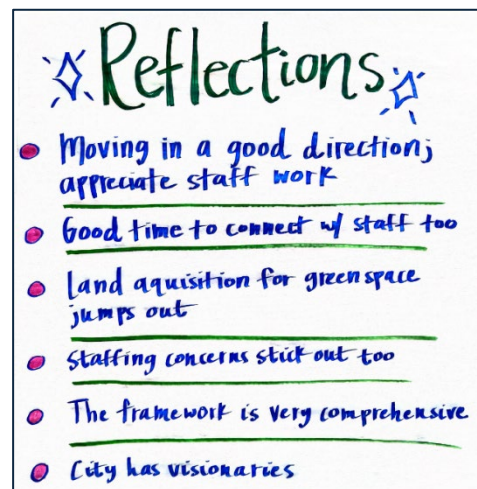 Reflections
Moving in a good direction;
appreciate staff work
Good time to connect w/ staff too
Land aquisition for greenspace
jumps out
Staffing concerns stick out too
The framework is very comprehensive
City has visionaries